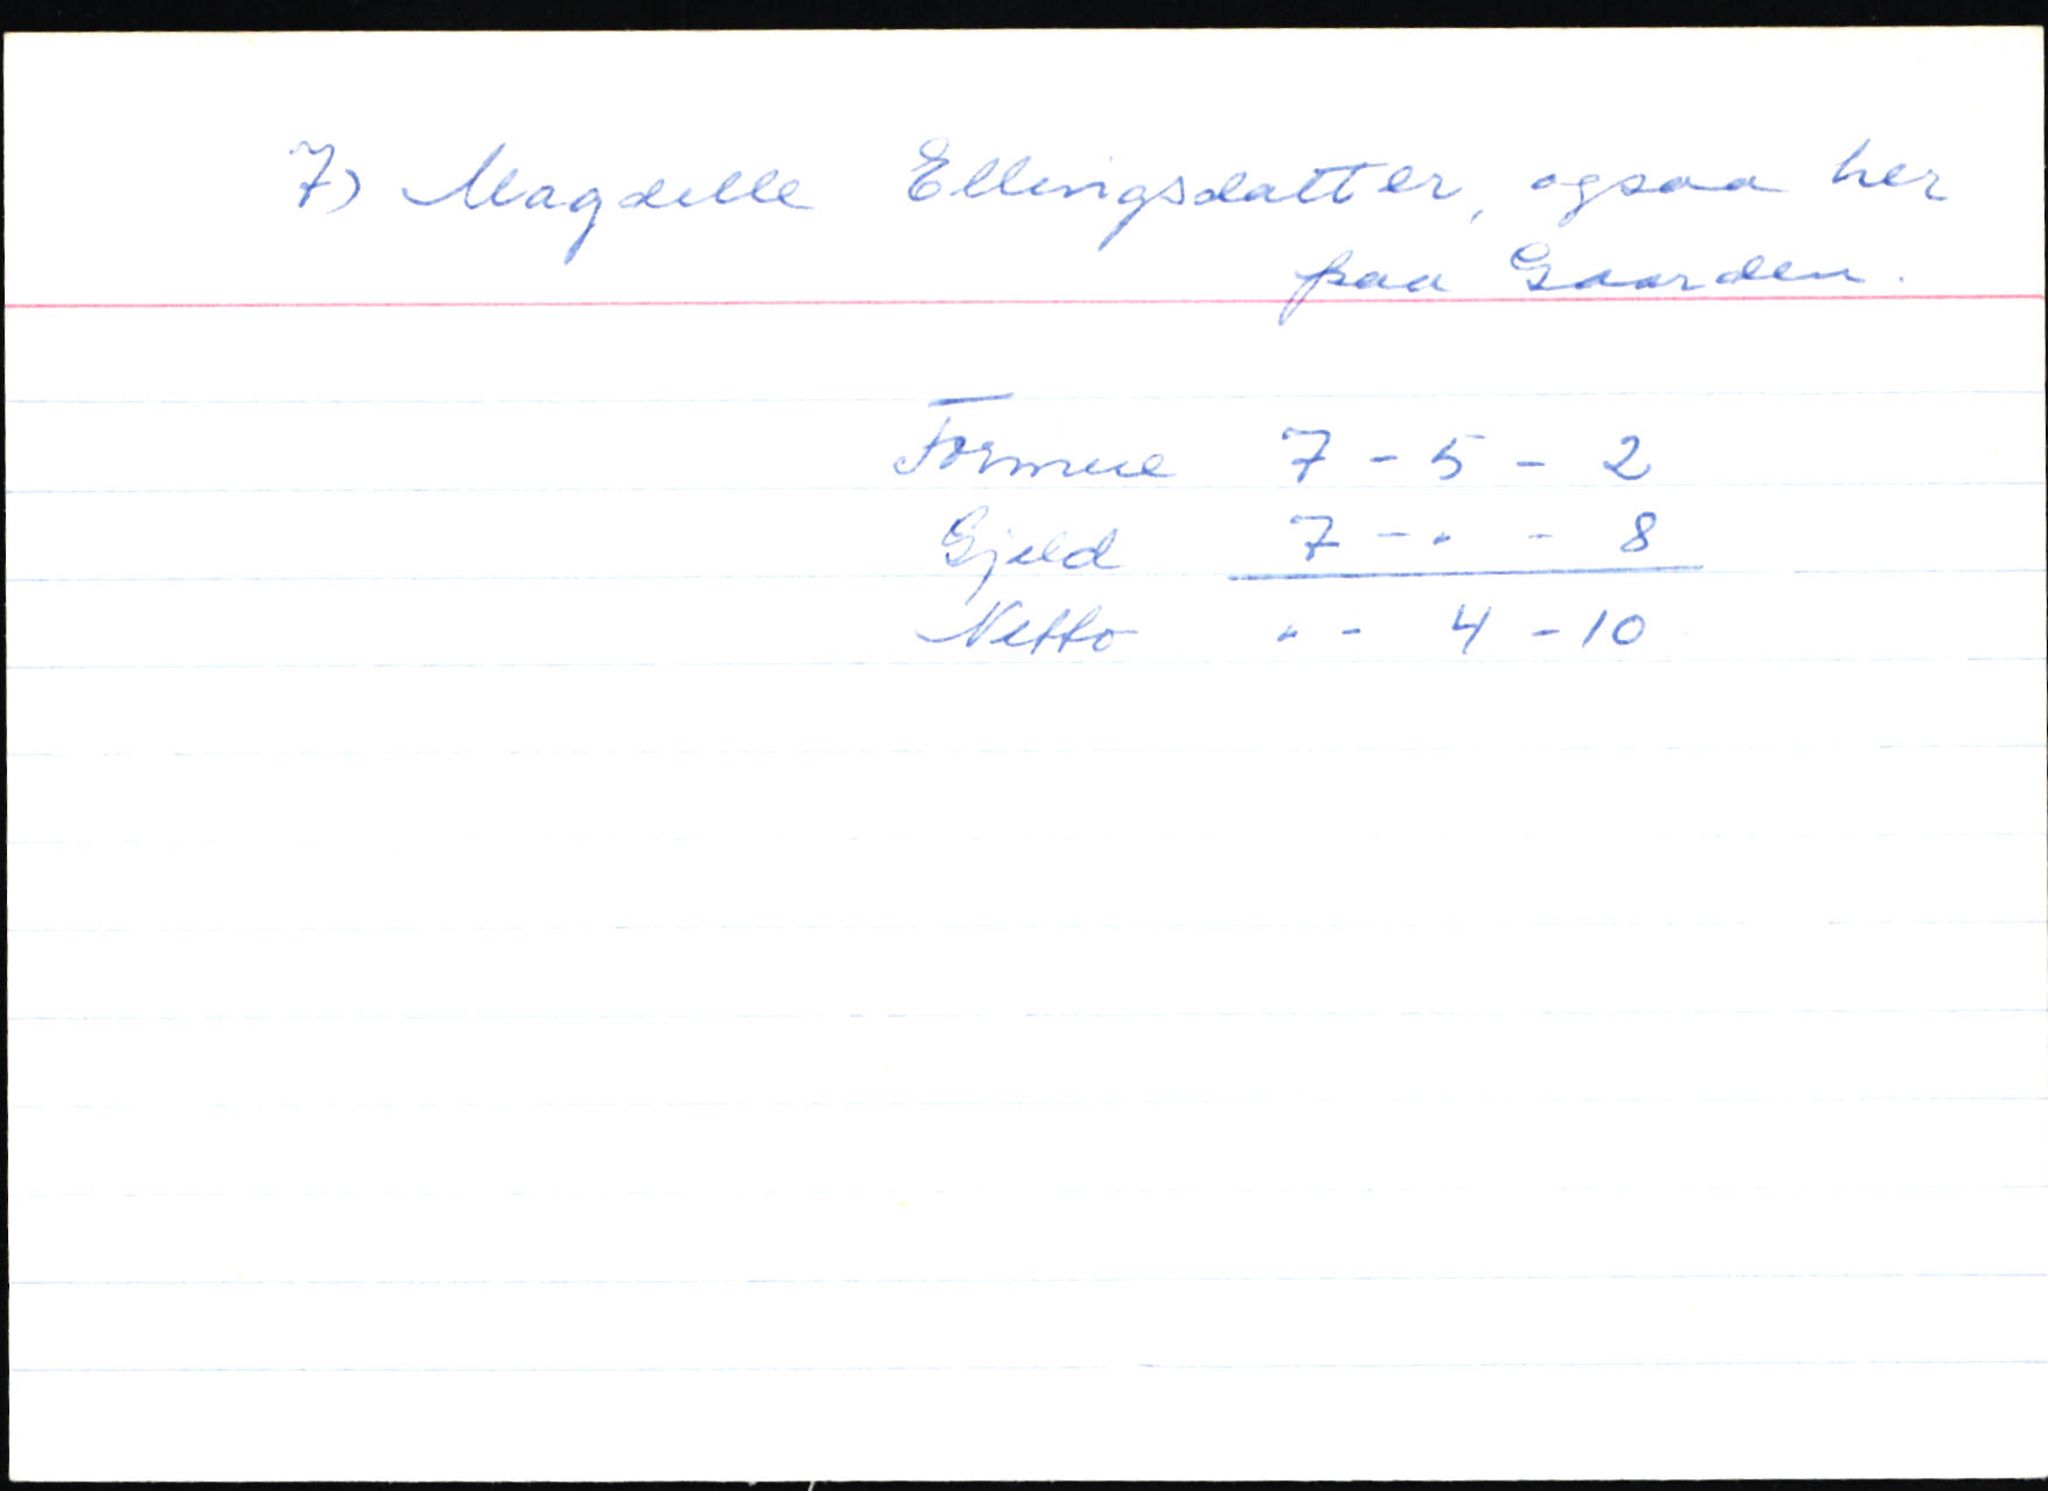 7) Magdelle Ellingsdatter, ogsaa her
paa Gaarden.
Formue 7 - 5 - 2
Gjeld 7 - " - 8
Netto " - 4 - 10